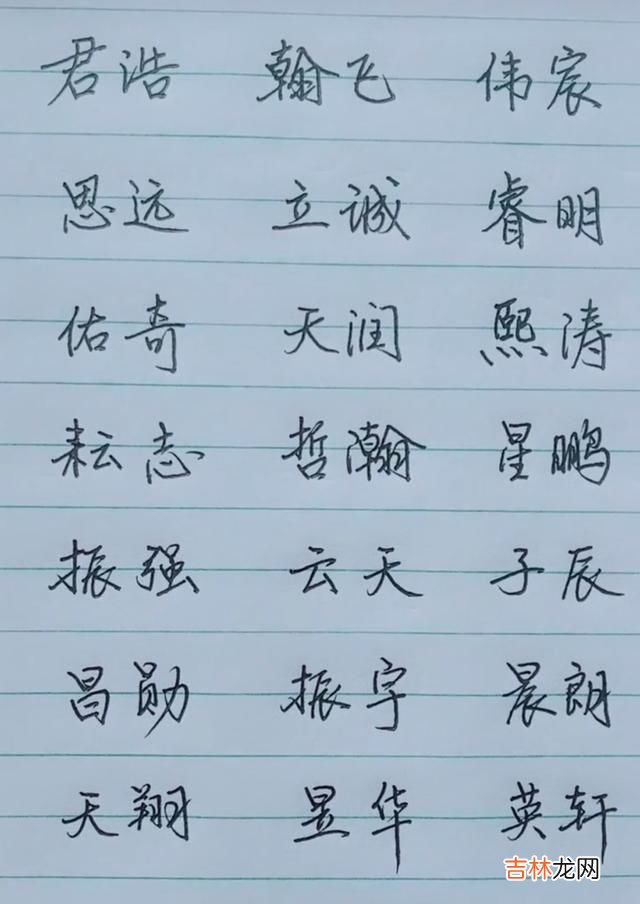 君浩 翰飞 伟宸
思远 立诚 睿明
佑奇 天润 熙涛
耘志 哲瀚 星鹏
振强 云天 子辰
昌勋 振宇 晨朗
天翔 昱华 英轩
吉林龙网